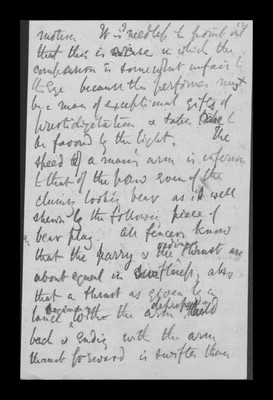 motion. It is needless to point out
that this is a case in which the
comparison is somewhat unfair to
the eye because the performer must
be a man of exceptional gifts of
prestidigitation & takes care to
be favoured by the light. The
speed of a man's arm is inferior
to that of the paw even of the
clumsy looking bear as is well
shewn by the following piece of
bear play. All fencers know
that the parry & the thrust are
about equal in swiftness, also
that a thrust as given by a
lance with the arm
back & ending with the arm
thrust forward is swifter than